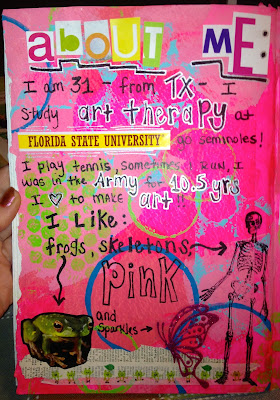 about ME
I am 31 - from TX - I
study art therapy at
FLORIDA STATE UNIVERSITY go seminoles!
I play tennis, sometimes run, I
was in the Army for 10.5 yrs
I ♡ to make art!!
I Like:
frogs, skeletons,
pink
and
sparkles